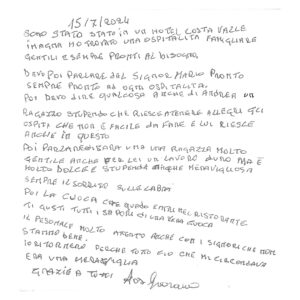 15/7/2024
SONO STATO STATO IN UN HOTEL COSTA VALLE
IMAGNA HO TROVATO UNA OSPITALITA FAMIGLIARE
GENTILI E SEMPRE PRONTI AL BISOGNO
DEVO POI PARLARE DEL SIGNOR MARIO PRONTO
SEMPRE PRONTO AD OGNI OSPITALITA.
POI DEVO DIRE QUALCOSA ANCHE DI ANDREA UN
RAGAZZO STUPENDO CHE RIESCE TENERE ALLEGRI GLI
OSPITI CHE NON È FACILE DA FARE E LUI RIESCE
ANCHE IN QUESTO
POI PARZANESE SARA UNA RAGAZZA MOLTO
GENTILE ANCHE PER LEI UN LAVORO DURO MA È
MOLTO DOLCE E STUPENDA ANCHE MERAVIGLIOSA
SEMPRE IL SORRISO SULLE LABBRA
POI LA CUOCA CHE QUANDO ENTRI NEL RISTORANTE
TI GUSTI TUTTI I SAPORI DI UNA VERA CUOCA
IL PERSONALE MOLTO ANCHE CON I SIGNORI CHE NON
STANNO BENE.
IO RITORNERO PERCHE TUTTO CIO CHE MI CIRCONDAVA
ERA UNA MERAVIGLIA
GRAZIE A TUTTI